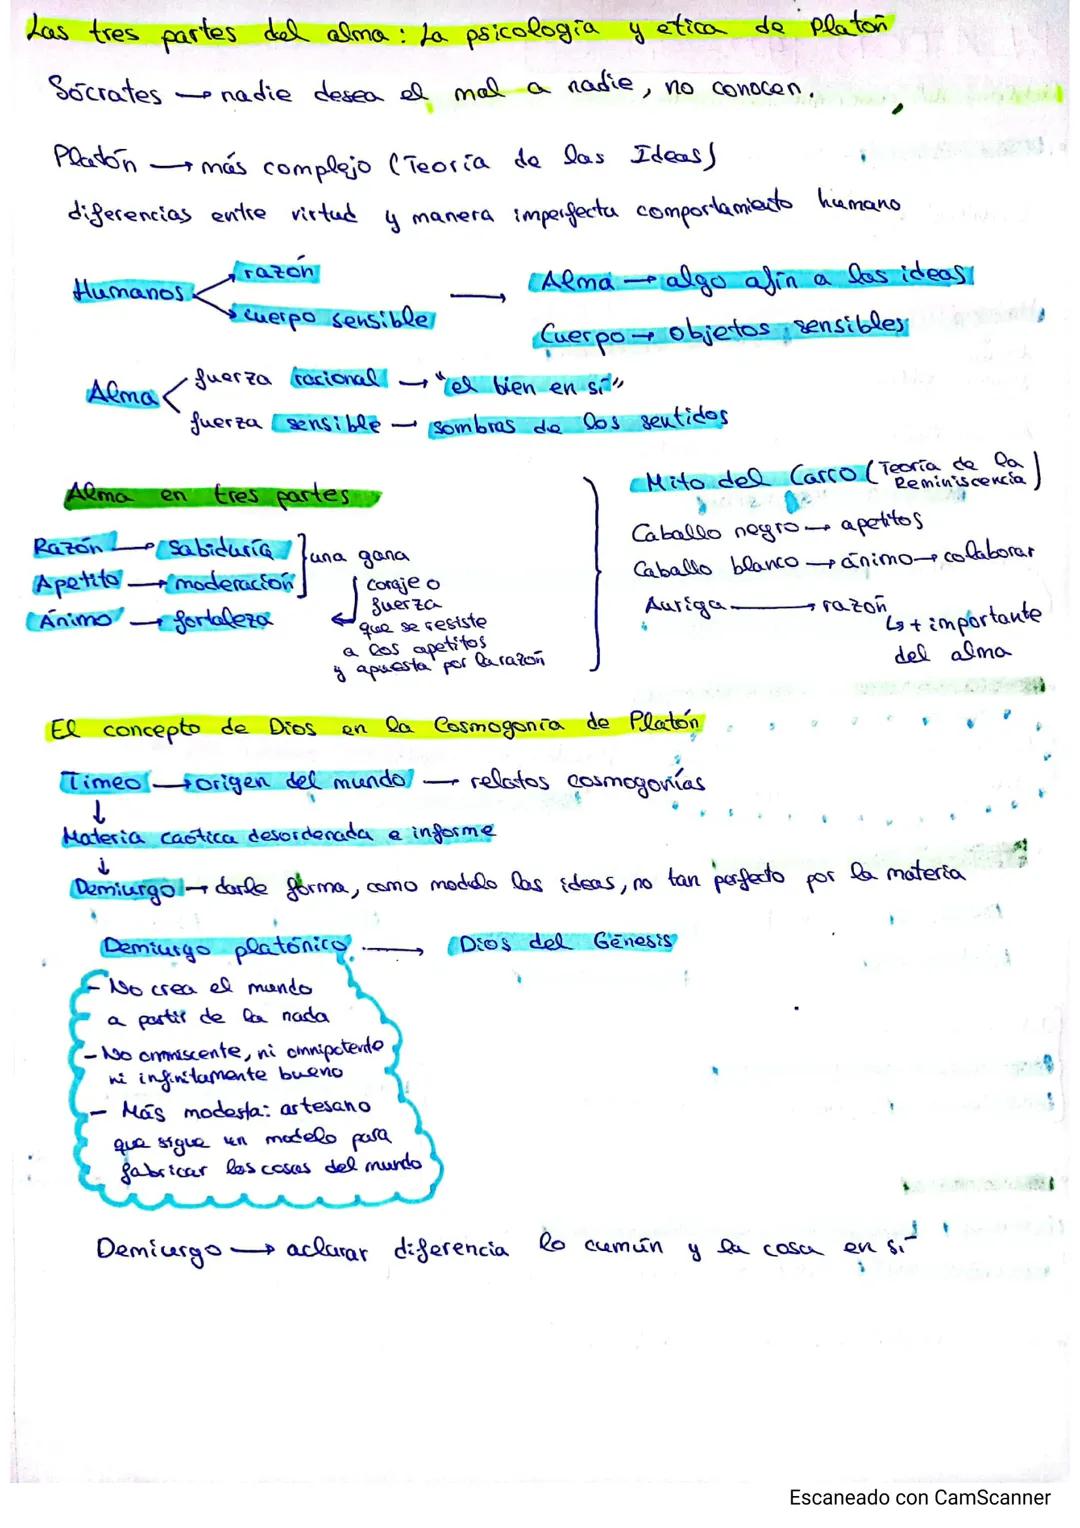 Las tres partes del alma: La psicología y etica de Platón
Sócrates → nadie desea el mal a nadie, no conocen.
Platón → más complejo (Teoría de las Ideas)
diferencias entre virtud y manera imperfecta comportamiento humano
Humanos
razón
cuerpo sensible
→
Alma → algo afín a las ideas
Cuerpo → objetos sensibles
Alma
fuerza racional → "el bien en sí"
fuerza sensible → sombras de los sentidos
Alma en tres partes
Razón → Sabiduría
Apetito → moderación
una gana
Ánimo → fortaleza
coraje o
fuerza
que se resiste
a los apetitos
y apuesta por la razón
Mito del Carro (Teoría de la
Reminiscencia)
Caballo negro → apetitos
Caballo blanco → ánimo → colaborar
Auriga → razón
↳ + importante
del alma
El concepto de Dios en la Cosmogonía de Platón
Timeo → origen del mundo → relatos cosmogonías
↓
Materia caótica desordenada e informe
↓
Demiurgo → darle forma, como modelo las ideas, no tan perfecto por la materia
Demiurgo platónico → Dios del Génesis
- No crea el mundo
a partir de la nada
- No omniscente, ni omnipotente
ni infinitamente bueno
- Más modesta: artesano
que sigue un modelo para
fabricar las cosas del mundo
Demiurgo → aclarar diferencia lo cumún y la cosa en sí
Escaneado con CamScanner